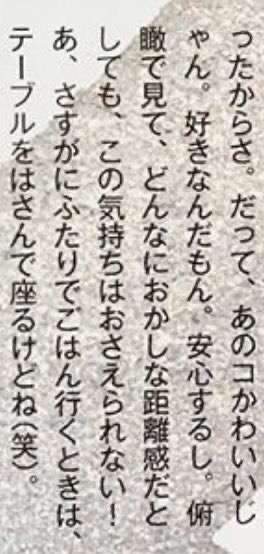 ったからさ。だって、あのコかわいいし
ゃん。好きなんだもん。安心するし。俯
瞰で見て、どんなにおかしな距離感だと
しても、この気持ちはおさえられない！
あ、さすがにふたりでごはん行くときは、
テーブルをはさんで座るけどね（笑）。